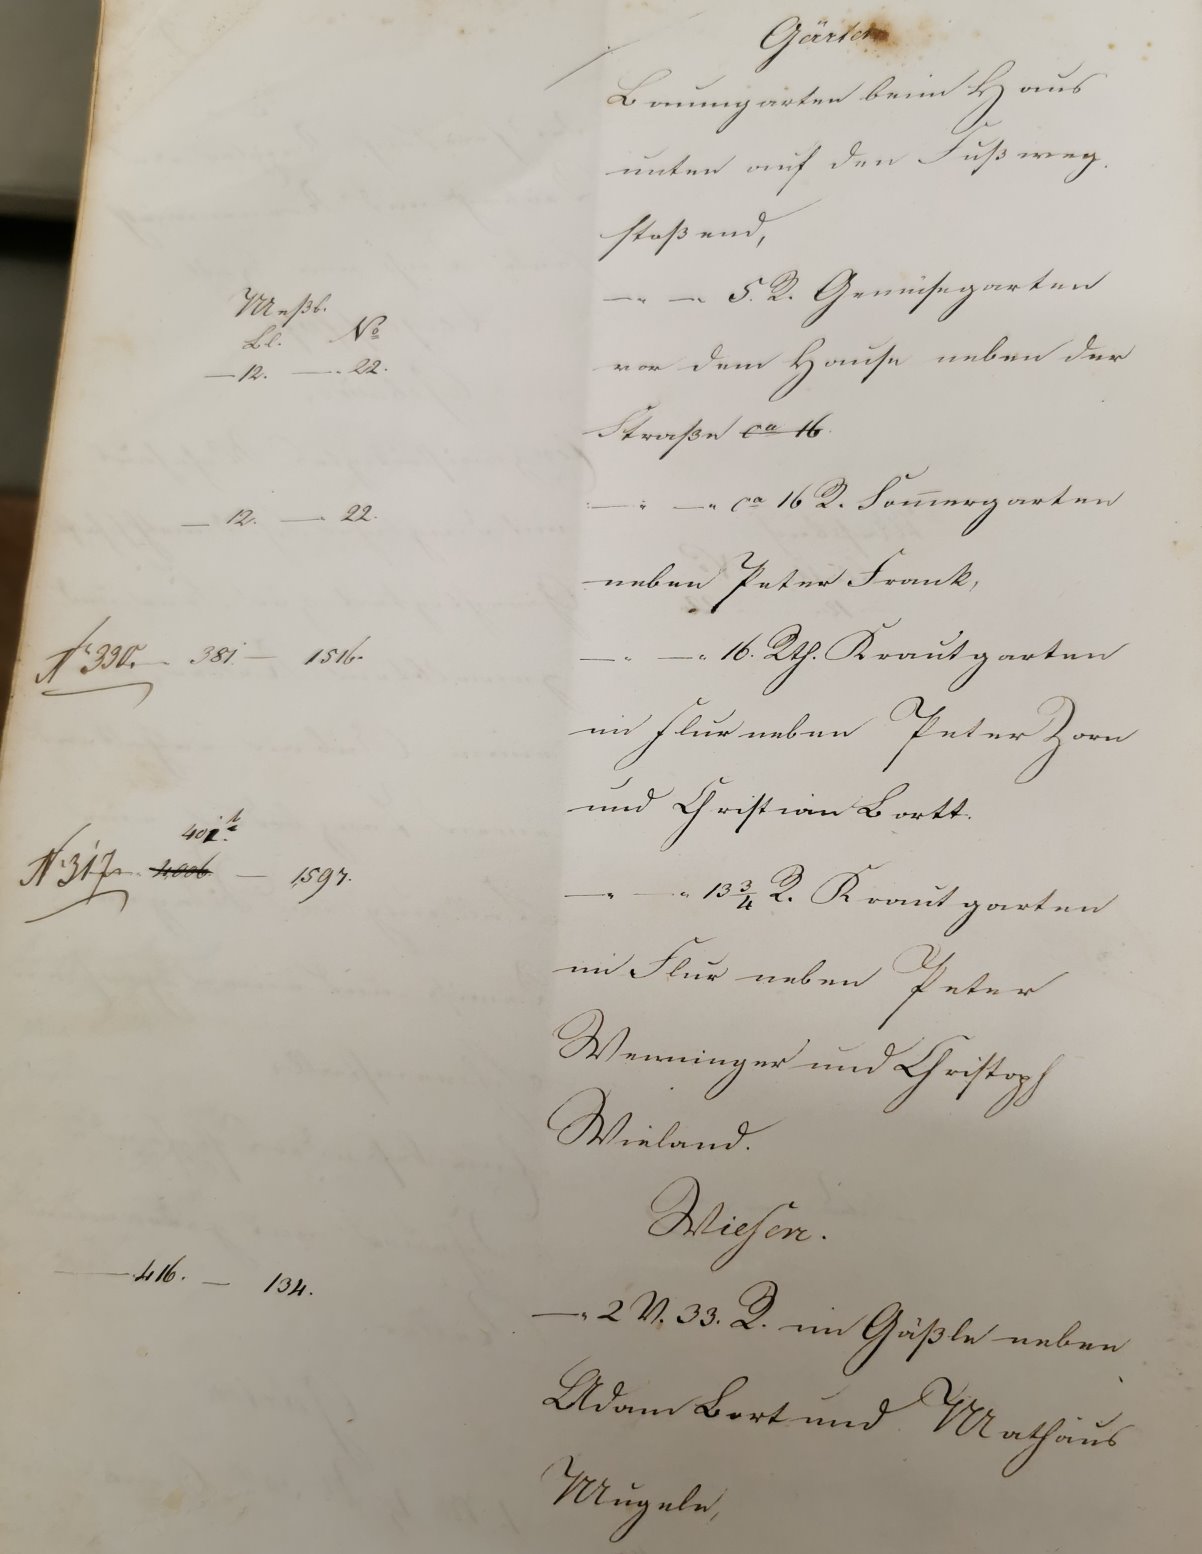 Gärten
Baumgarten beim Haus
unten auf den Fußweg
stoßend,
Meßb.
Bl. No
— 12. — 22.
—„ —„ 5. R. Gemüsegarten
vor dem Hause neben der
Straße ca 16
— 12. — 22.
—„ —„ ca 16 R. Som̅ergarten
neben Peter Frank,
No 330. — 381. — 1516.
—„ —„ 16. Rth. Krautgarten
im Flur neben Peter Zorn
und Christian Bortt.
401
No 317 — 4006 — 1597.
—„ —„ 13 3/4 R. Krautgarten
im Flur neben Peter
Wenninger und Christoph
Wieland.
Wiesen.
— 416. — 134.
—„ 2 V. 33. R. im Gäßle neben
Adam Bort und Mathäus
Mugele,